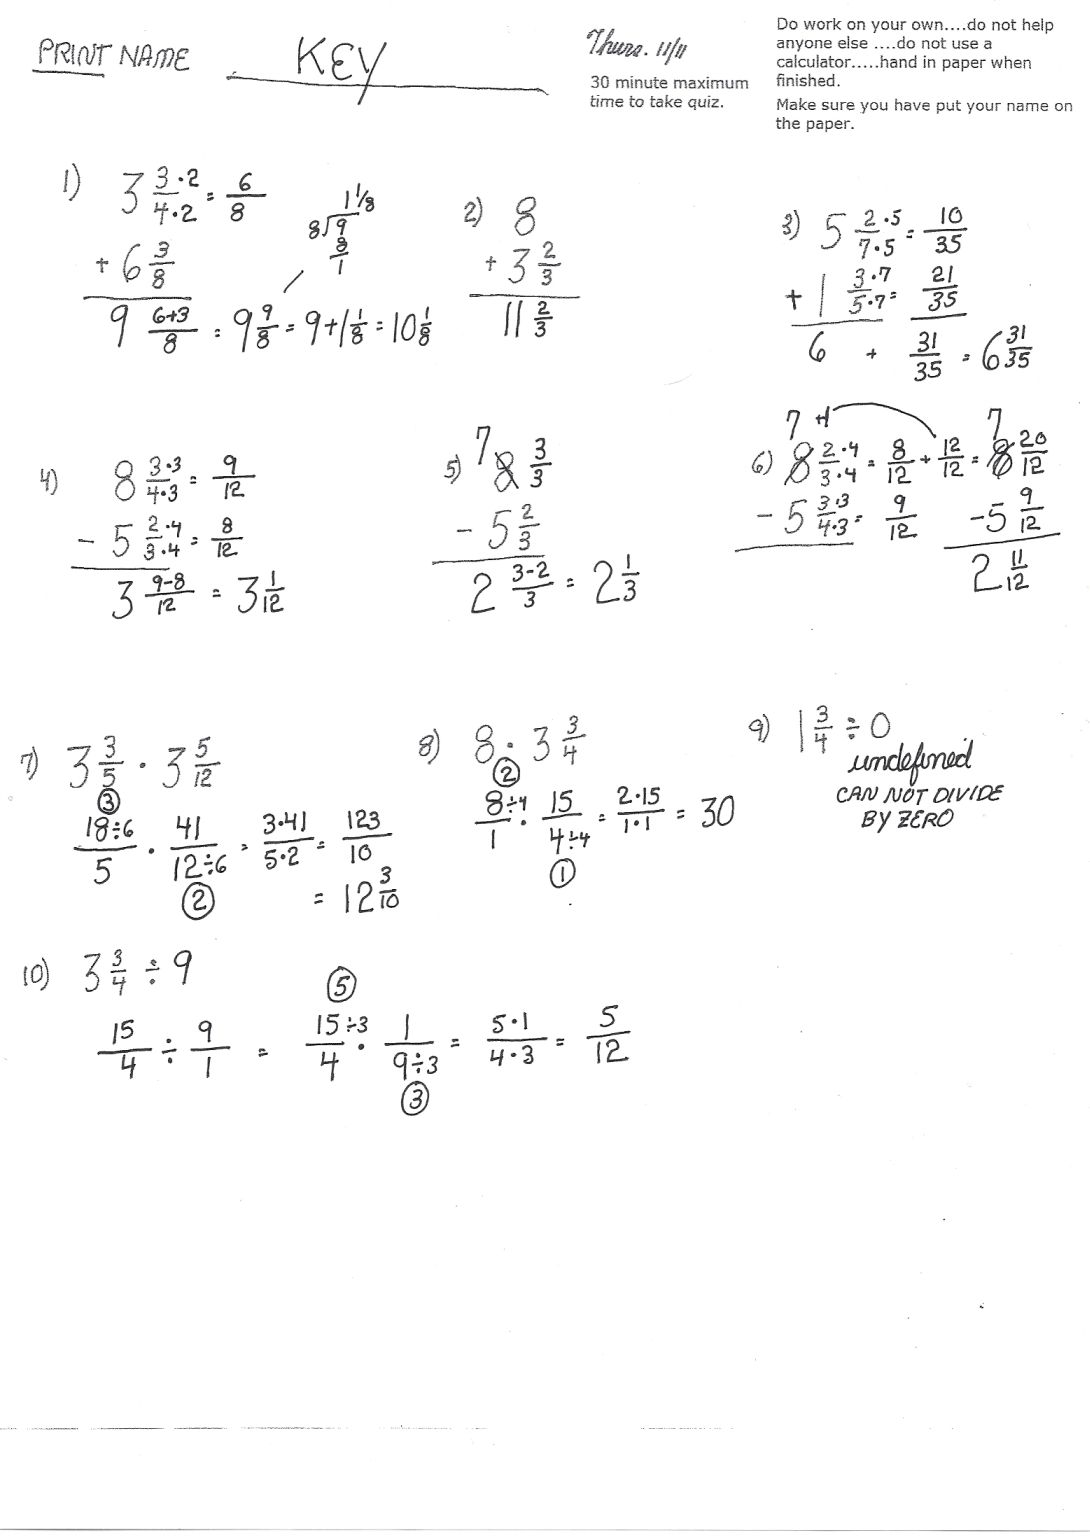 PRINT NAME KEY
Thurs. 11/11
30 minute maximum
time to take quiz.
Do work on your own....do not help
anyone else ....do not use a
calculator.....hand in paper when
finished.
Make sure you have put your name on
the paper.
1) 3 3·2/4·2 = 6/8
+ 6 3/8
9 6+3/8 = 9 9/8 = 9+1 1/8 = 10 1/8
1 1/8
8√9
8
1
2) 8
+ 3 2/3
11 2/3
3) 5 2·5/7·5 = 10/35
+ 1 3·7/5·7 = 21/35
6 + 31/35 = 6 31/35
4) 8 3·3/4·3 = 9/12
- 5 2·4/3·4 = 8/12
3 9-8/12 = 3 1/12
7
5) 8 3/3
- 5 2/3
2 3-2/3 = 2 1/3
7 +1 7
6) 8 2·4/3·4 = 8/12 + 12/12 = 8 20/12
- 5 3·3/4·3 = 9/12 -5 9/12
2 11/12
7) 3 3/5 · 3 5/12
3
18÷6/5 · 41/12÷6 = 3·41/5·2 = 123/10
2
= 12 3/10
8) 8 · 3 3/4
2
8÷4/1 · 15/4÷4 = 2·15/1·1 = 30
1
9) 1 3/4 ÷ 0
undefined
CAN NOT DIVIDE
BY ZERO
10) 3 3/4 ÷ 9
5
15/4 ÷ 9/1 = 15÷3/4 · 1/9÷3 = 5·1/4·3 = 5/12
3